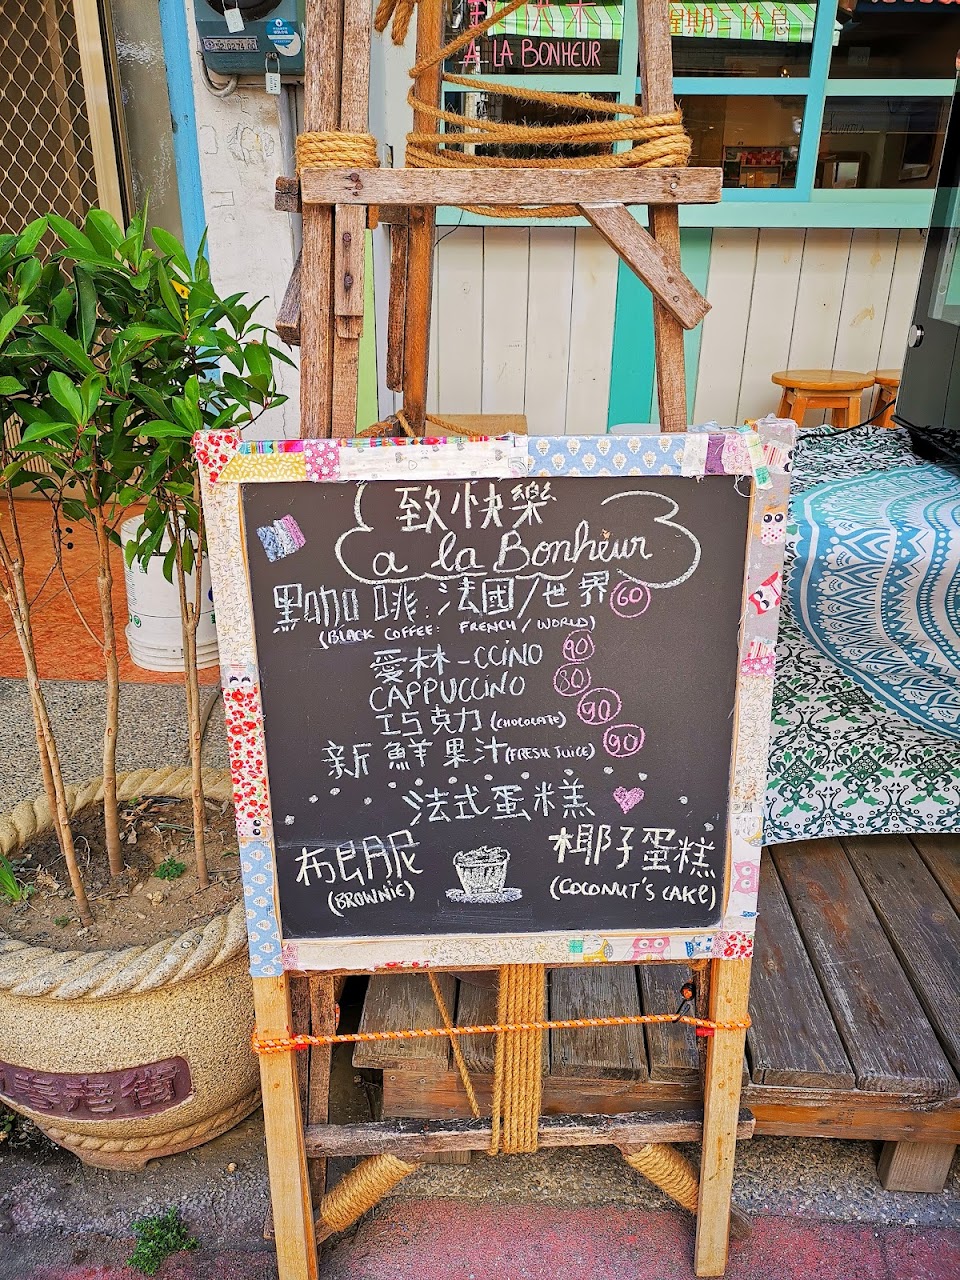 致快樂
A LA BONHEUR
星期三休息
致快樂
a la Bonheur
黑咖啡:法國/世界 60
(BLACK COFFEE: FRENCH / WORLD)
愛林-CCINO 90
CAPPUCCINO 80
巧克力 (CHOCOLATE) 90
新鮮果汁 (FRESH JUICE) 90
法式蛋糕
布朗尼 椰子蛋糕
(BROWNIE) (COCONUT'S CAKE)
老街